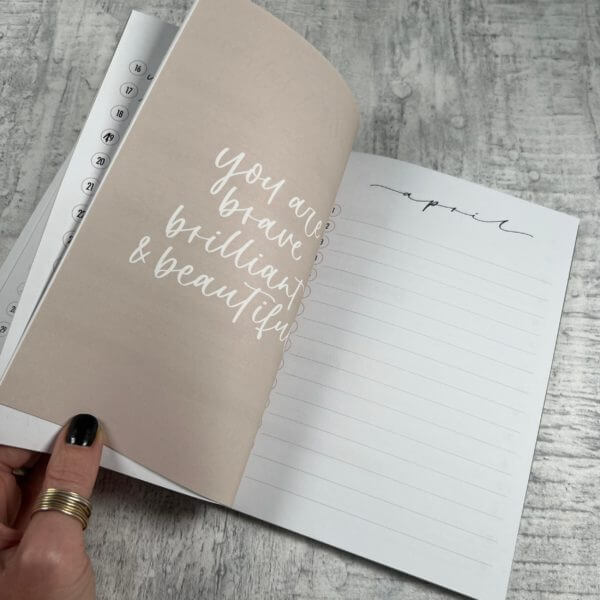 16
17
18
19
20
21
22
29
you are
brave
brilliant
& beautiful
april
1
2